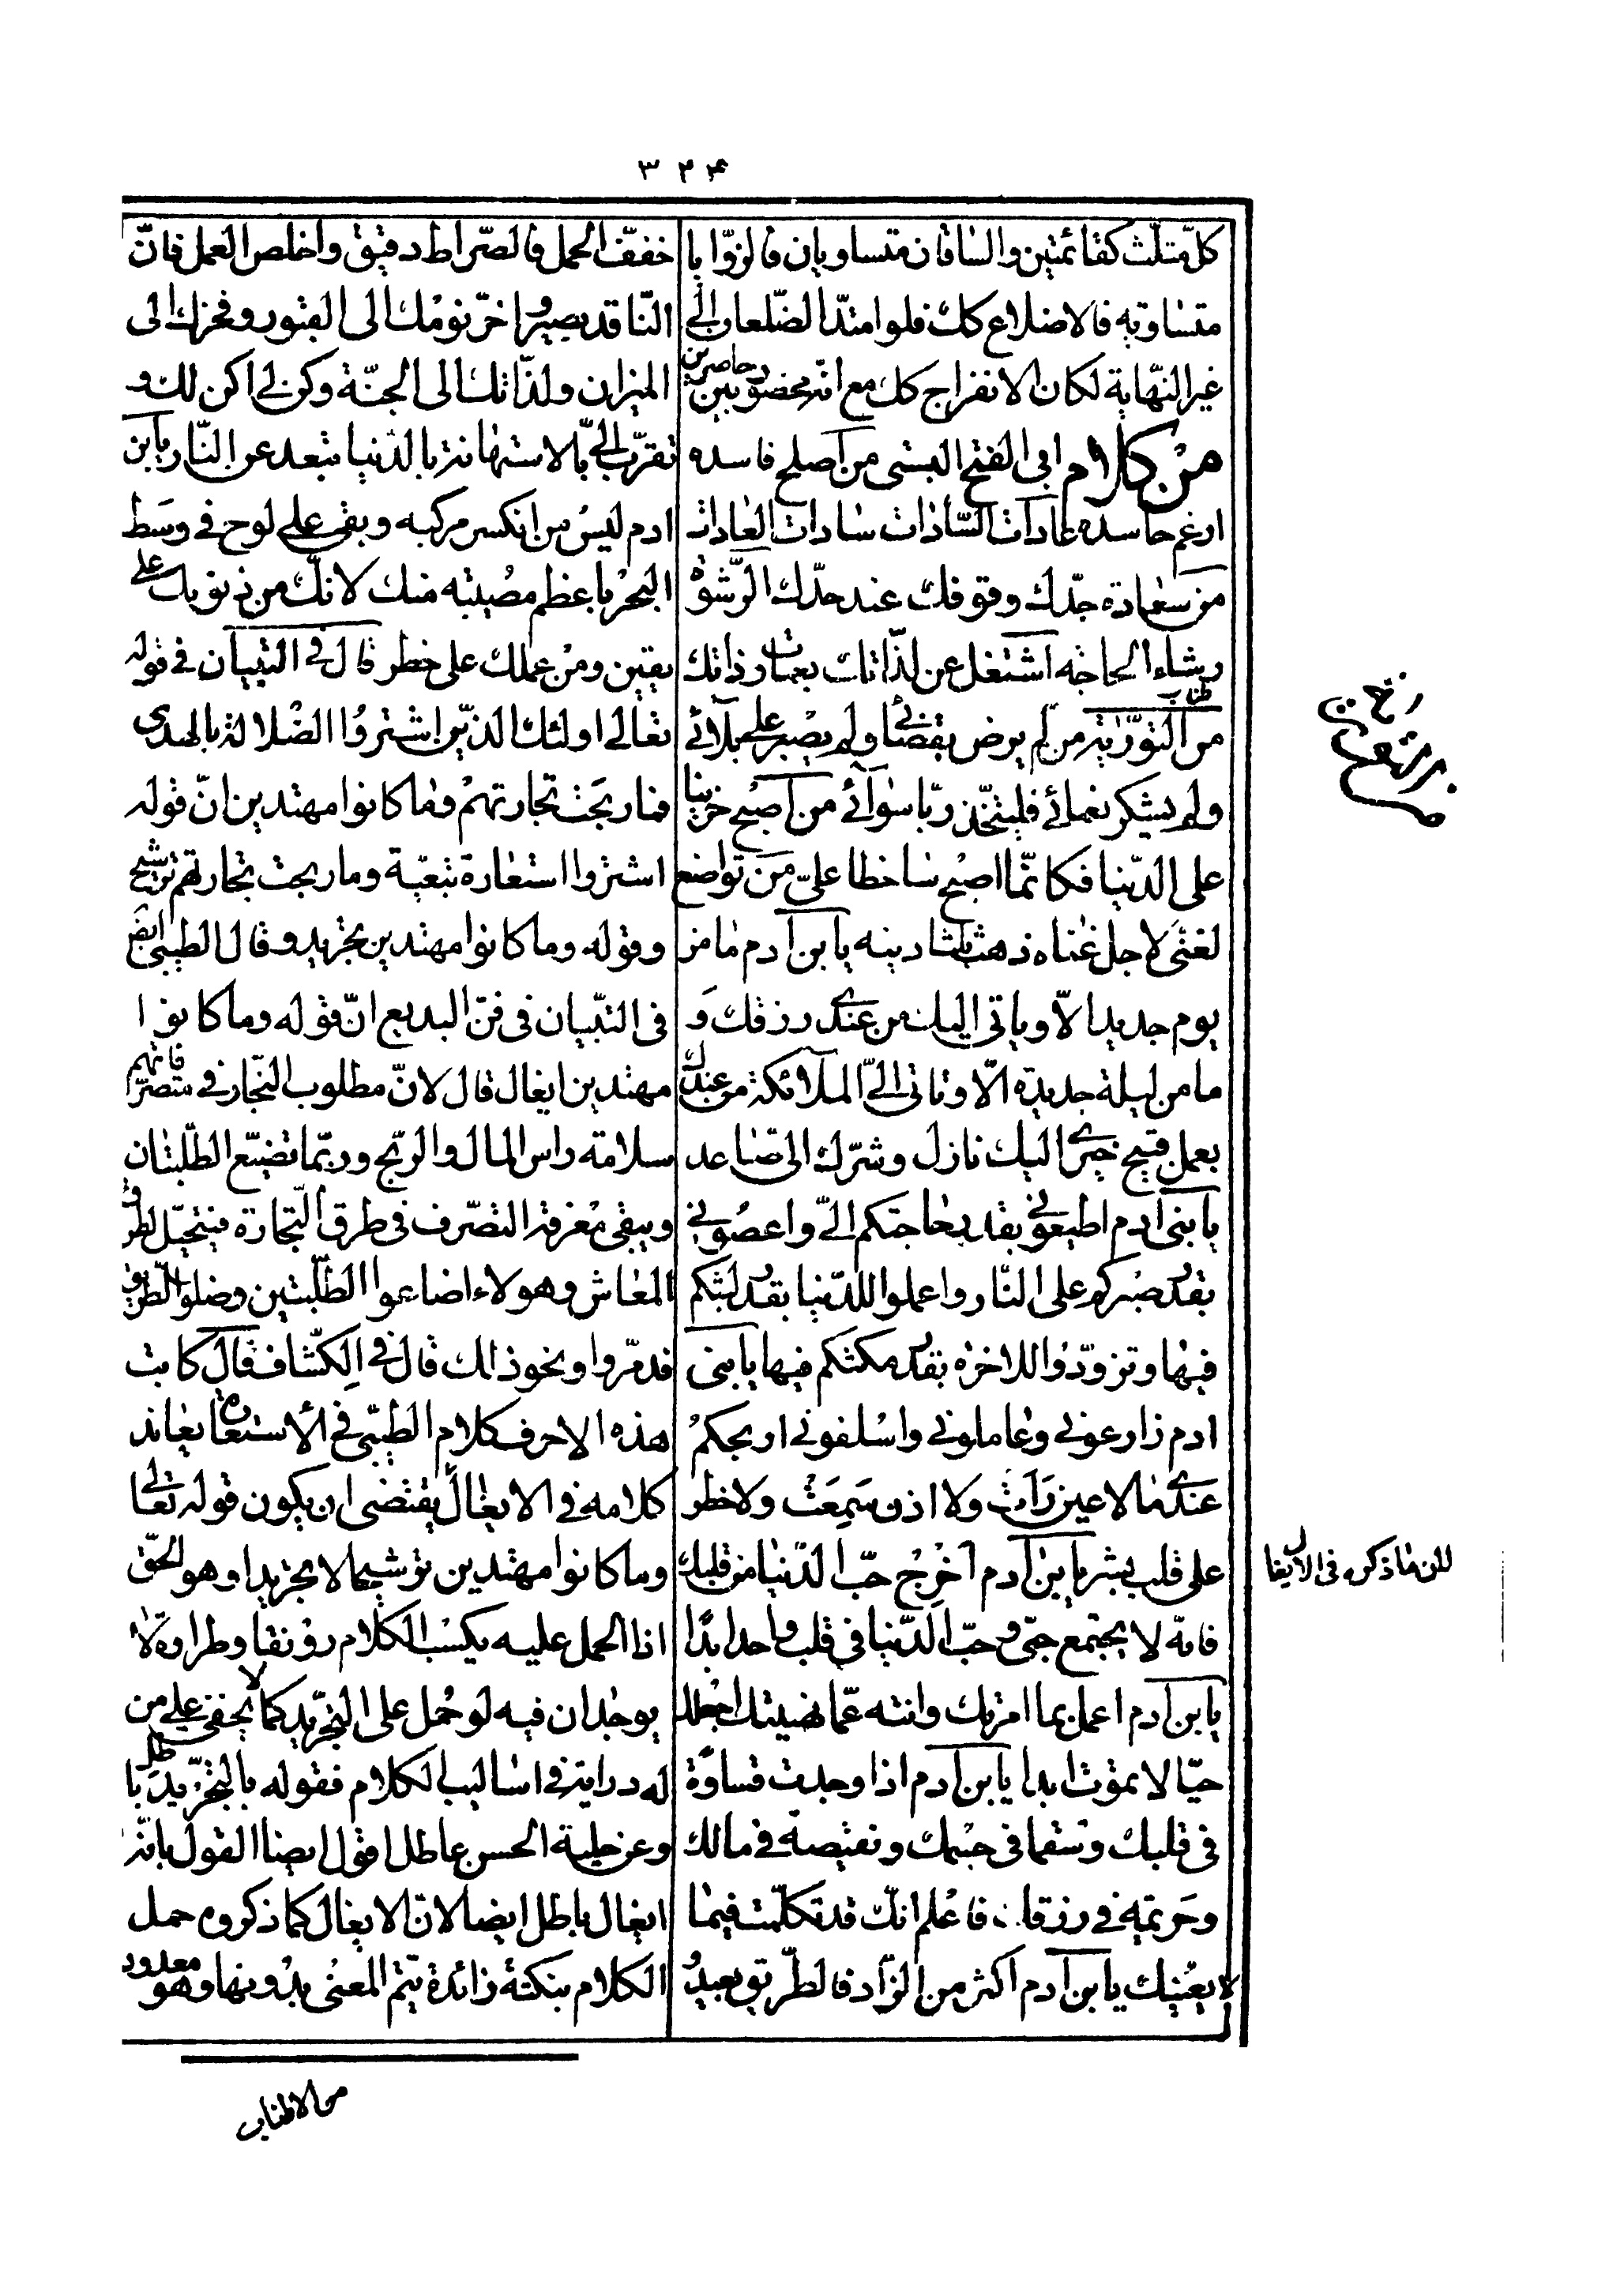 ٣٢٤
كل مثلث كقائمتين والساقان متساويان فالزوايا
متساوية فالاضلاع كك فلو امتدّ الضلعان إلى
غير النّهاية لكان الانفراج كك مع انه محصور بين حاصرين
من كلام ابي الفتح البستي من اصلح فاسده
ارغم حاسده عادات السّادات سادات العادات
من سعادة جدّك وقوفك عند حدّك الرّشوة
رشاء الحاجة اشتغل عن لذّاتك بعمارة ذاتك
من التّوراية من لم يرض بقضائي ولم يصبر على بلائي
ولم يشكر نعمائي فليتّخذ ربّا سوائي من اصبح حزينا
على الدّنيا فكانّما اصبح ساخطا علىّ من تواضع
لغنىّ لاجل غناه ذهب ثلثا دينه يا بن آدم ما من
يوم جديد الاّ وياتي اليك من عندي رزقك و
ما من ليلة جديدة الاّ وتاتي الىّ الملآئكة من عندك
بعمل قبيح خيري اليك نازل وشرّك الىّ صاعد
يا بني ادم اطيعوني بقدر حاجتكم الىّ واعصوني
بقدر صبركم على النّار واعملوا للدّنيا بقدر لبثكم
فيها وتزوّدوا للاخرة بقدر مكثكم فيها يا بنى
ادم زارعوني وعاملوني واسلفوني اربحكم
عندي ما لا عين رأت ولا اذن سمعت ولا خطر
على قلب بشر يا بن آدم اخرج حبّ الدّنيا من قلبك
فانّه لا يجتمع حبّي وحبّ الدّنيا في قلب واحد ابدًا
يا بن آدم اعمل بما امرتك وانته عمّا نهيتك اجعلك
حيّا لا تموت ابدا يا بن آدم اذا وجدت قساوة
في قلبك وسقما في جسمك ونقيصة في مالك
وحريمة في رزقك فاعلم انّك قد تكلّمت فيما
لا يعنيك يا بن آدم اكثر من الزّاد فالطّريق بعيد و
خفّف الحمل فالصّراط دقيق واخلص العمل فانّ
النّاقد بصير واخّر نومك الى القبور وفخرك الى
الميزان ولذّاتك الى الجنّة وكن لي اكن لك و
تقرّب الىّ بالاستهانة بالدّنيا تبعد عن النّار يا بن
ادم ليس من انكسر مركبه وبقى على لوح في وسط
البحر باعظم مصيبة منك لانّك من ذنوبك على
يقين ومن عملك على خطر قال في التبيان في قوله
تعالى اولئك الذين اشتروا الضلالة بالهدى
فما ربحت تجارتهم وما كانوا مهتدين انّ قوله
اشتروا استعارة تبعيّة وما ربحت تجارتهم ترشيح
وقوله وما كانوا مهتدين تجريد وقال الطيبي ايض
في التّبيان في فنّ البديع انّ قوله وما كانوا
مهتدين ايغال قال لانّ مطلوب التّجار في متصرّفاتهم
سلامة راس المال والرّبح وربّما تضيع الطّلبتان
ويبقى معرفة التصرّف في طرق التّجارة فيتحيّل لطرق
المعاش وهولاء اضاعوا الطّلبتين وضلوا الطّريق
فدمّروا ونحو ذلك قال في الكشّاف قال كاتب
هذه الاحرف كلام الطيبي في الاستعارة يعاند
كلامه في الايغال يقتضى ان يكون قوله تعالى
وما كانوا مهتدين ترشيحا لا تجريدا وهو الحق
اذ الحمل عليه يكسب الكلام رونقا وطراوة لا
يوجدان فيه لو حمل على التجريد كما لا يخفى على من
له دراية في اساليب الكلام فقوله بالتجريد باطل
وعن حلية الحسن عاطل اقول ايضا القول بانّه
ايغال باطل ايضا لانّ الايغال كما ذكروه حمل
الكلام بنكتة زائدة يتم المعنى بدونها وهو معدود
لان ما ذكره في الايغال
من الاطناب